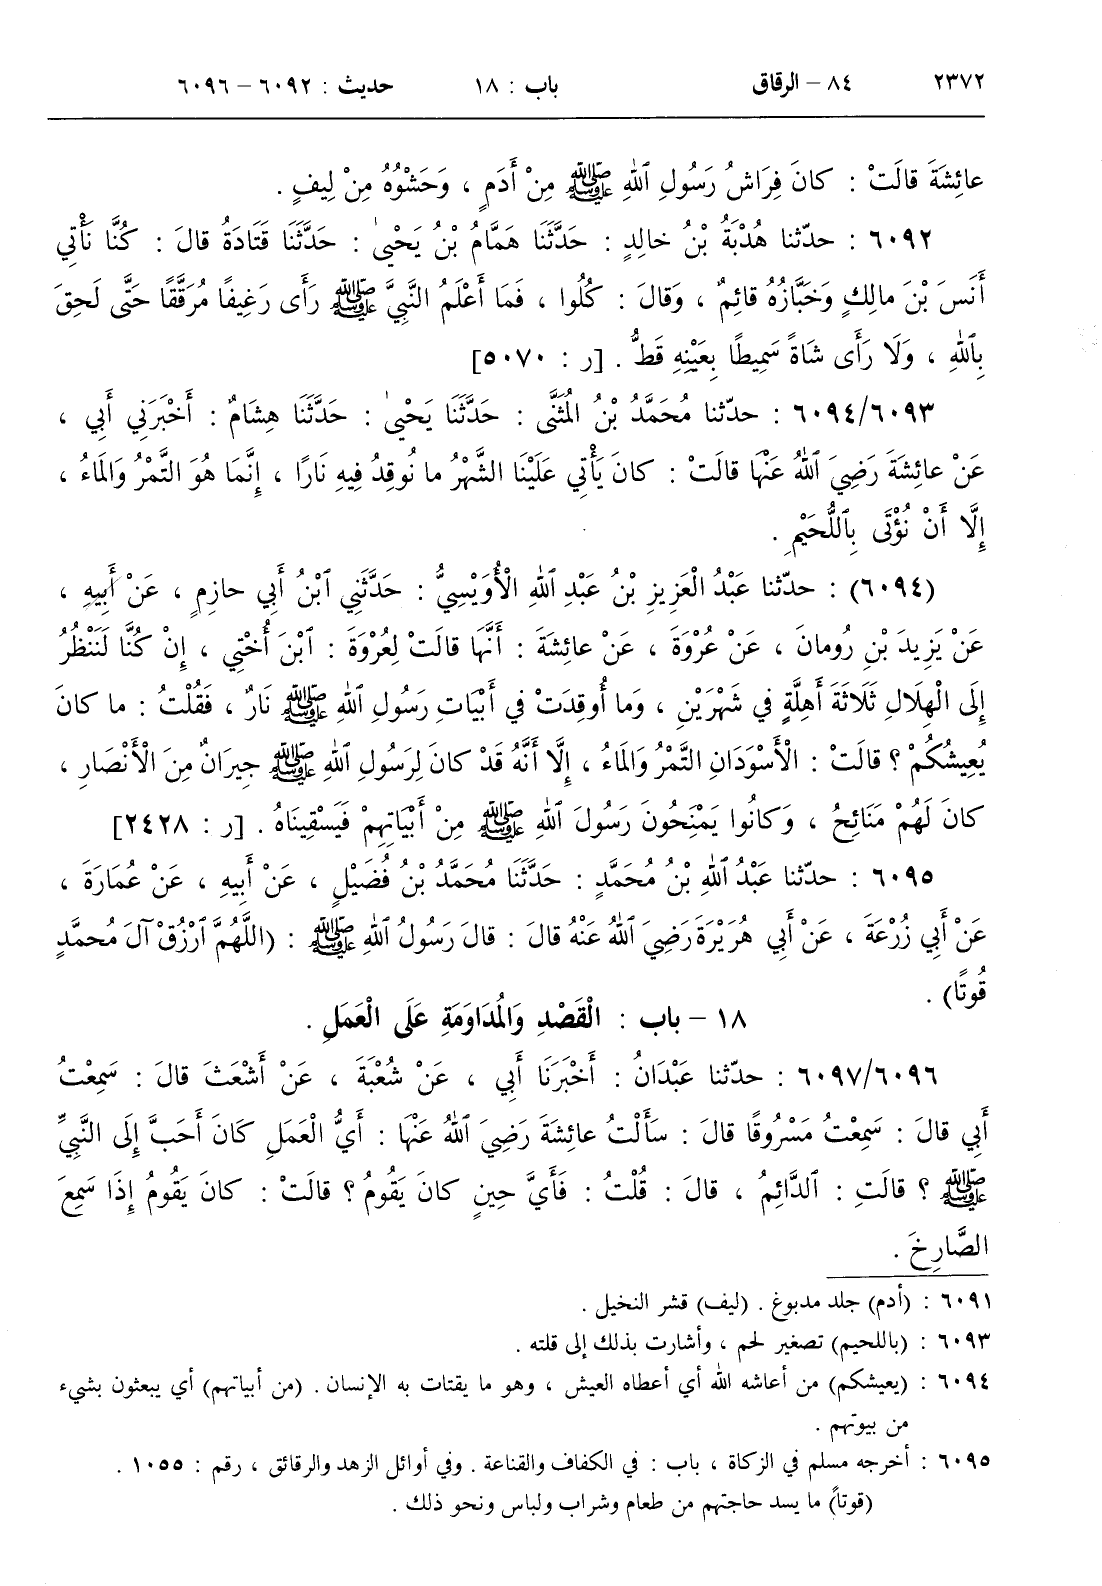 ٢٣٧٢ ٨٤ – الرقاق باب : ١٨ حديث : ٦٠٩٢ – ٦٠٩٦
عائِشَةَ قالَتْ : كانَ فِرَاشُ رَسُولِ ٱللهِ ﷺ مِنْ أَدَمٍ ، وَحَشْوُهُ مِنْ لِيفٍ .
٦٠٩٢ : حدّثنا هُدْبَةُ بْنُ خالِدٍ : حَدَّثَنَا هَمَّامُ بْنُ يَحْيىٰ : حَدَّثَنَا قَتَادَةُ قالَ : كُنَّا نَأْتِي
أَنَسَ بْنَ مالِكٍ وَخَبَّازُهُ قائِمٌ ، وَقالَ : كُلُوا ، فَمَا أَعْلَمُ النَّبِيَّ ﷺ رَأَى رَغِيفًا مُرَقَّقًا حَتَّى لَحِقَ
بِٱللهِ ، وَلَا رَأَى شَاةً سَمِيطًا بِعَيْنِهِ قَطُّ . [ر : ٥٠٧٠]
٦٠٩٤/٦٠٩٣ : حدّثنا مُحَمَّدُ بْنُ الْمُثَنَّى : حَدَّثَنَا يَحْيىٰ : حَدَّثَنَا هِشَامٌ : أَخْبَرَنِي أَبِي ،
عَنْ عائِشَةَ رَضِيَ ٱللهُ عَنْهَا قالَتْ : كانَ يَأْتِي عَلَيْنَا الشَّهْرُ ما نُوقِدُ فِيهِ نَارًا ، إِنَّمَا هُوَ التَّمْرُ وَالمَاءُ ،
إِلَّا أَنْ نُؤْتَى بِٱللُّحَيْمِ .
(٦٠٩٤) : حدّثنا عَبْدُ الْعَزِيزِ بْنُ عَبْدِ ٱللهِ الْأُوَيْسِيُّ : حَدَّثَنِي ٱبْنُ أَبِي حازِمٍ ، عَنْ أَبِيهِ ،
عَنْ يَزِيدَ بْنِ رُومانَ ، عَنْ عُرْوَةَ ، عَنْ عائِشَةَ : أَنَّهَا قالَتْ لِعُرْوَةَ : ٱبْنَ أُخْتِي ، إِنْ كُنَّا لَنَنْظُرُ
إِلَى الْهِلَالِ ثَلَاثَةَ أَهِلَّةٍ فِي شَهْرَيْنِ ، وَما أُوقِدَتْ فِي أَبْيَاتِ رَسُولِ ٱللهِ ﷺ نَارٌ ، فَقُلْتُ : ما كانَ
يُعِيشُكُمْ ؟ قالَتْ : الْأَسْوَدَانِ التَّمْرُ وَالمَاءُ ، إِلَّا أَنَّهُ قَدْ كانَ لِرَسُولِ ٱللهِ ﷺ جِيرَانٌ مِنَ الْأَنْصَارِ ،
كانَ لَهُمْ مَنَائِحُ ، وَكانُوا يَمْنَحُونَ رَسُولَ ٱللهِ ﷺ مِنْ أَبْيَاتِهِمْ فَيَسْقِينَاهُ . [ر : ٢٤٢٨]
٦٠٩٥ : حدّثنا عَبْدُ ٱللهِ بْنُ مُحَمَّدٍ : حَدَّثَنَا مُحَمَّدُ بْنُ فُضَيْلٍ ، عَنْ أَبِيهِ ، عَنْ عُمَارَةَ ،
عَنْ أَبِي زُرْعَةَ ، عَنْ أَبِي هُرَيْرَةَ رَضِيَ ٱللهُ عَنْهُ قالَ : قالَ رَسُولُ ٱللهِ ﷺ : (اللَّهُمَّ ٱرْزُقْ آلَ مُحمَّدٍ
قُوتًا) .
١٨ – باب : الْقَصْدِ وَالمُدَاوَمَةِ عَلَى الْعَمَلِ .
٦٠٩٧/٦٠٩٦ : حدّثنا عَبْدَانُ : أَخْبَرَنَا أَبِي ، عَنْ شُعْبَةَ ، عَنْ أَشْعَثَ قالَ : سَمِعْتُ
أَبِي قالَ : سَمِعْتُ مَسْرُوقًا قالَ : سَأَلْتُ عائِشَةَ رَضِيَ ٱللهُ عَنْهَا : أَيُّ الْعَمَلِ كانَ أَحَبَّ إِلَى النَّبِيِّ
ﷺ ؟ قالَتِ : ٱلدَّائِمُ ، قالَ : قُلْتُ : فَأَيَّ حِينٍ كانَ يَقُومُ ؟ قالَتْ : كانَ يَقُومُ إِذَا سَمِعَ
الصَّارِخَ .
٦٠٩١ : (أدم) جلد مدبوغ . (ليف) قشر النخيل .
٦٠٩٣ : (باللحيم) تصغير لحم ، وأشارت بذلك إلى قلته .
٦٠٩٤ : (يعيشكم) من أعاشه الله أي أعطاه العيش ، وهو ما يقتات به الإنسان . (من أبياتهم) أي يبعثون بشيء
من بيوتهم .
٦٠٩٥ : أخرجه مسلم في الزكاة ، باب : في الكفاف والقناعة . وفي أوائل الزهد والرقائق ، رقم : ١٠٥٥ .
(قوتاً) ما يسد حاجتهم من طعام وشراب ولباس ونحو ذلك .